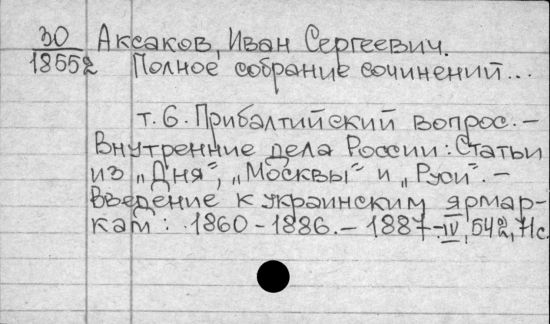 30 Аксаков, Иван Сергеевич.
18552 Полное собрание сочинений...
т. 6. Прибалтийский вопрос. –
Внутренние дела России: Статьи
из „Дня", „Москвы" и „Руси". –
Введение к украинским ярмар-
кам: 1860 – 1886. – 1887 – IV, 542, 71 с.